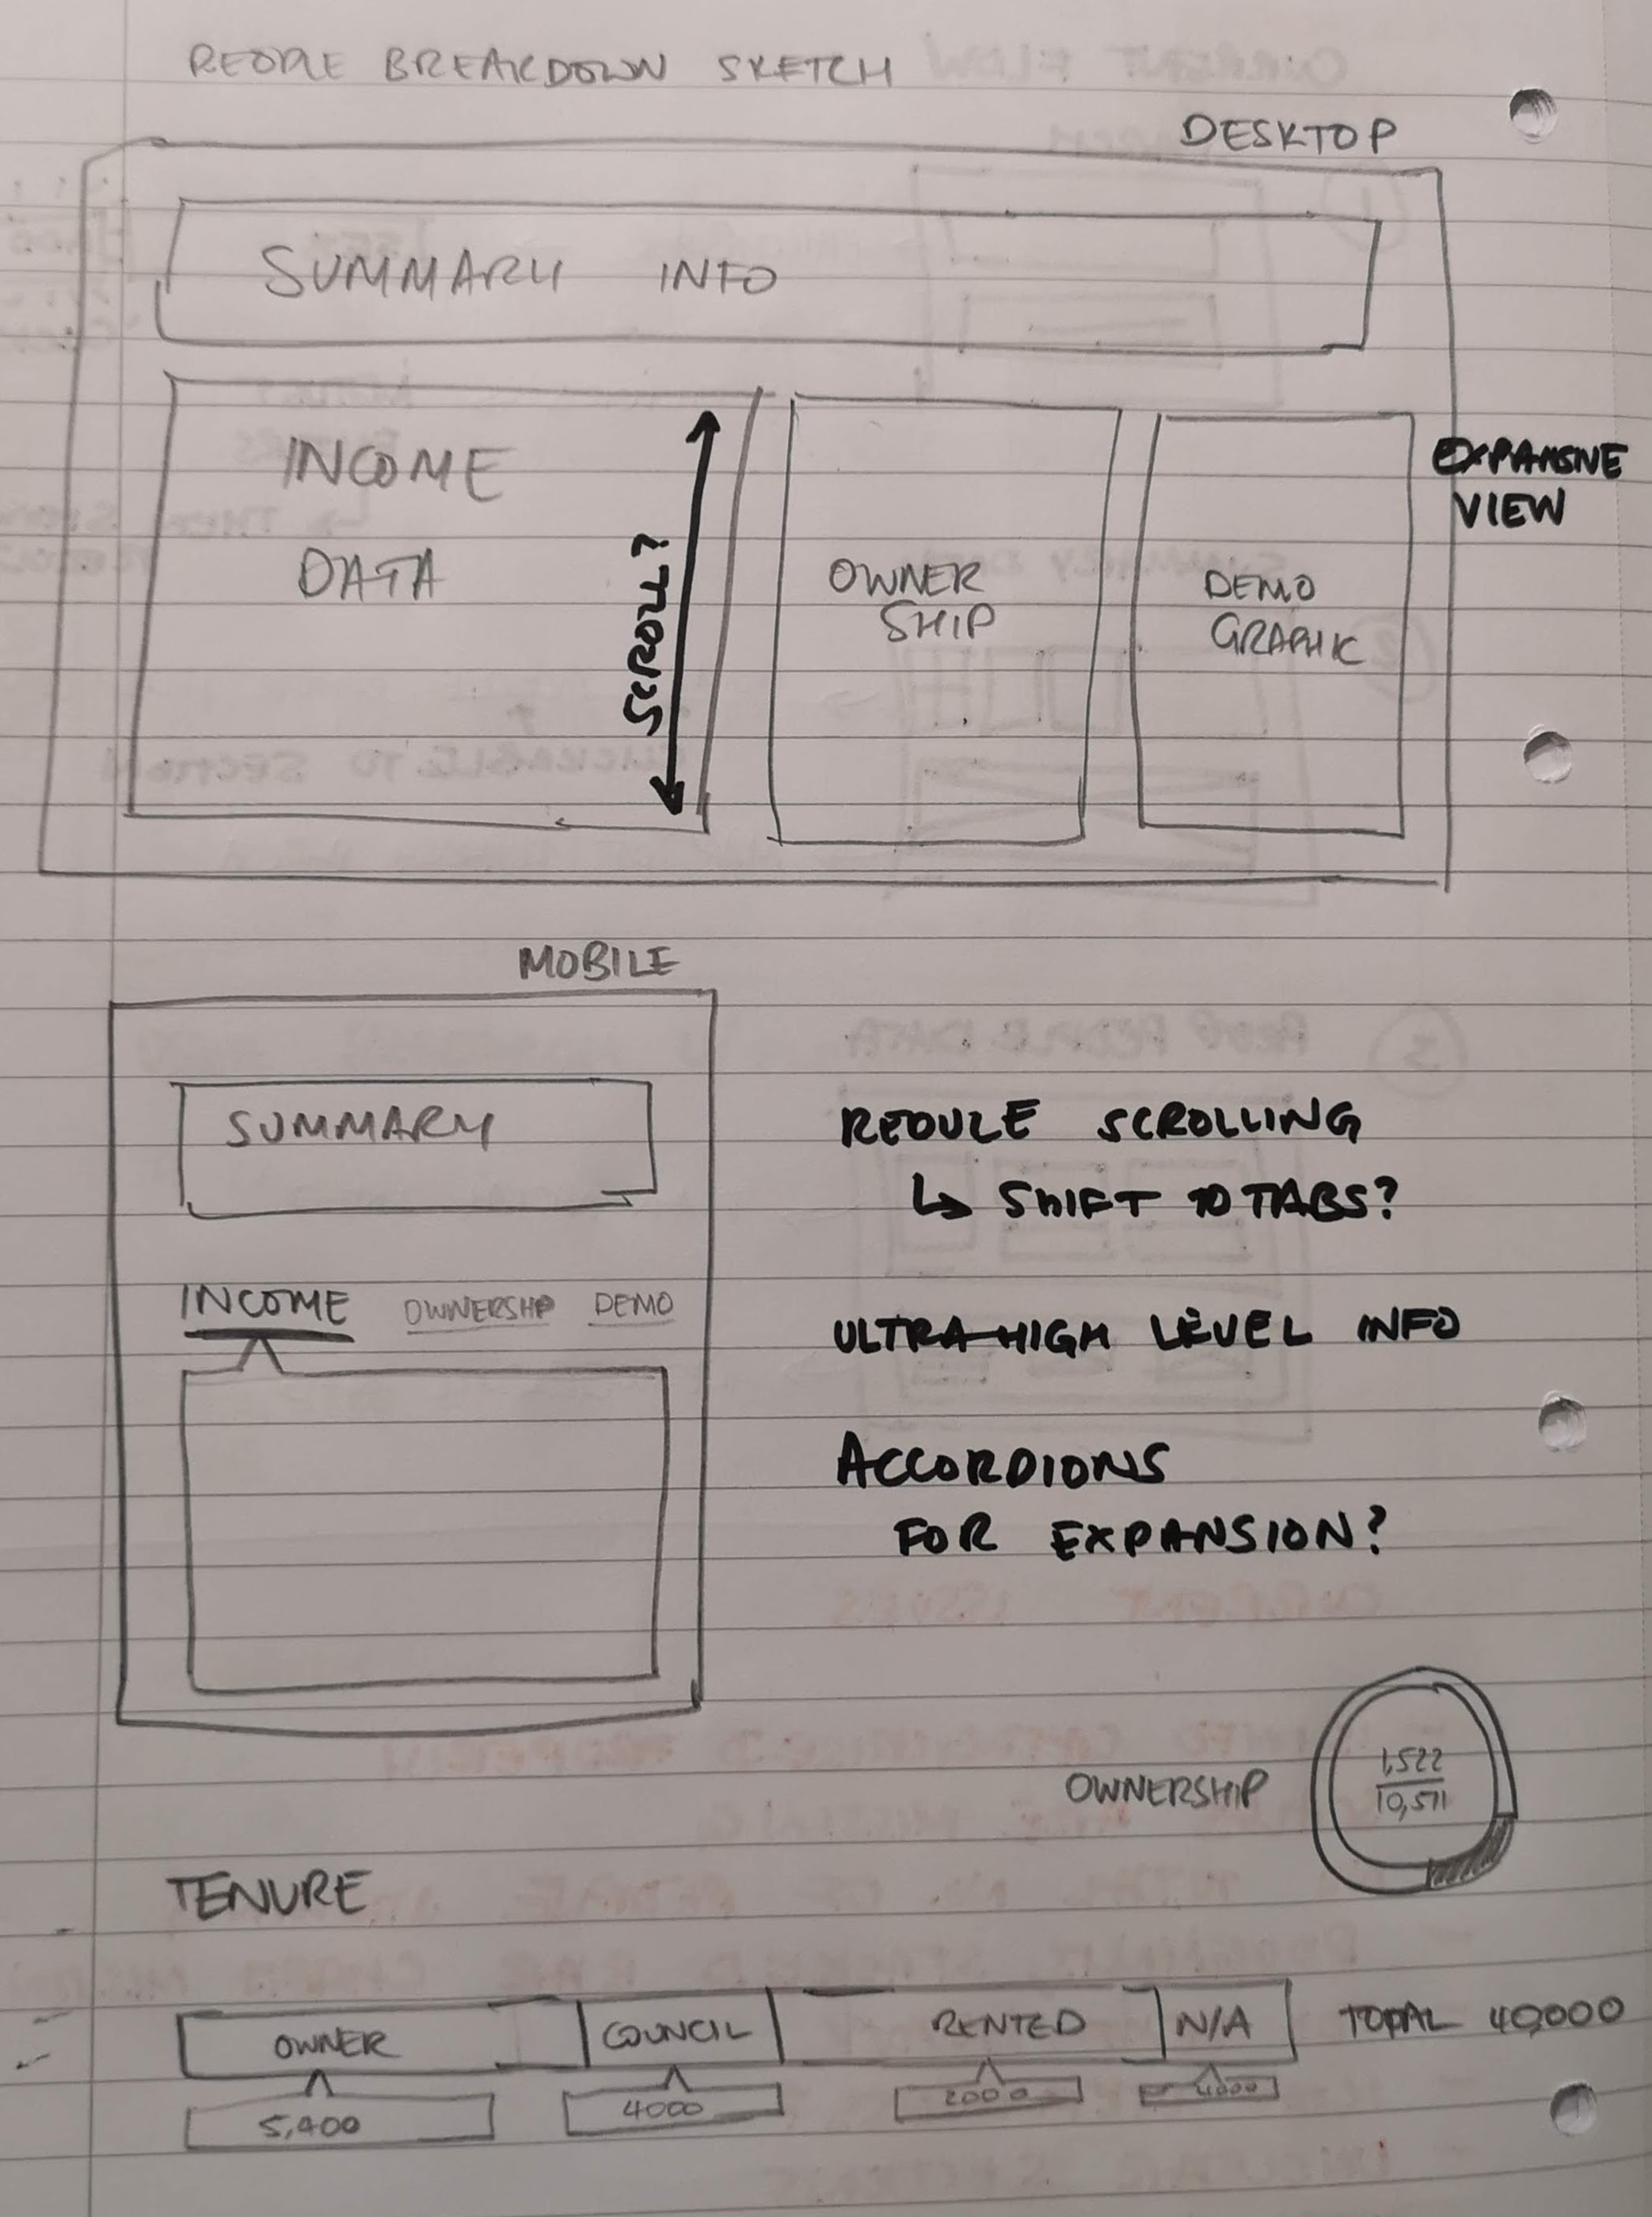 PEOPLE BREAKDOWN SKETCH
DESKTOP
SUMMARY INFO
INCOME
DATA
SCROLL?
OWNER
SHIP
DEMO
GRAPHIC
EXPANSIVE
VIEW
MOBILE
SUMMARY
INCOME OWNERSHIP DEMO
REDUCE SCROLLING
↳ SHIFT TO TABS?
ULTRA-HIGH LEVEL INFO
ACCORDIONS
FOR EXPANSION?
OWNERSHIP
1,522
10,511
TENURE
OWNER COUNCIL RENTED N/A TOTAL 40,000
5,400 4000 2000